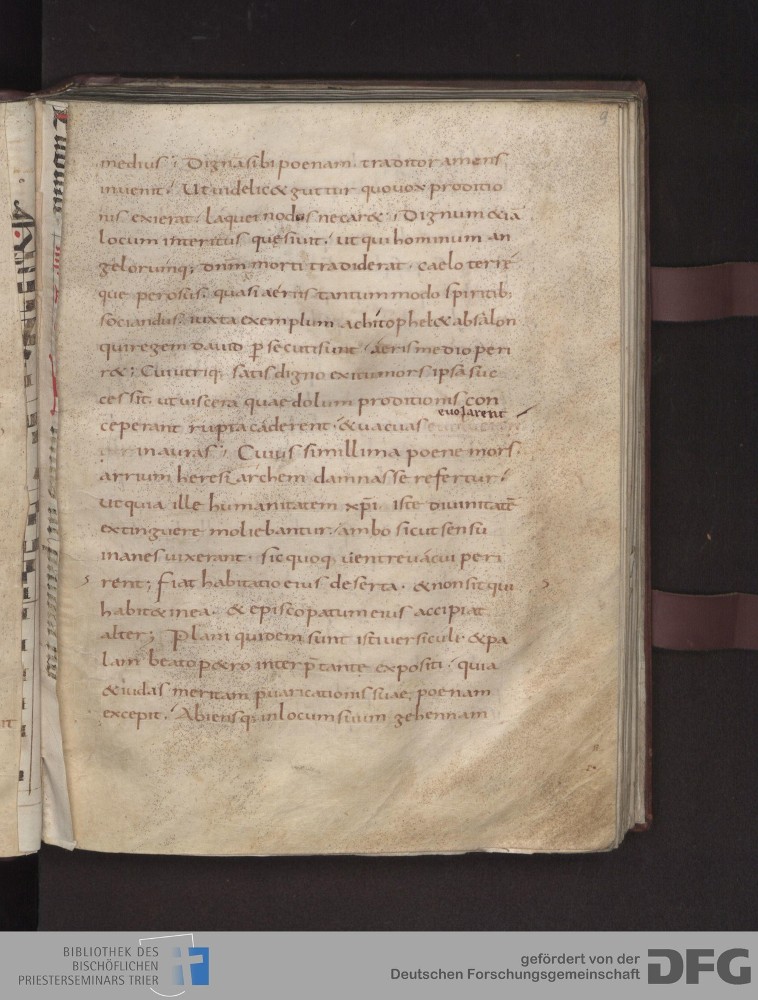 9
medius; Dignasibi poenam traditor amens
inuenit. Ut uidelic& guttur quo uox proditio
nis exierat. laquei nodus necar&; Dignum &iā
locum interitus quesiuit. ut qui hominum an
gelorumq; dnm̄ morti tradiderat. caelo terrę
que perosus. quasi aeriis tantummodo spiritib;
sociandus. iuxta exemplum achitophel & absalon
qui regem dauid p̄secuti sunt. aeris medio peri
r&; Cui utriq; satis digno exitu mors ipsa suc
cessit. ut uiscera quae dolum proditionis con
euolarent
ceperant rupta caderent. & uacuas
in auras; Cuius simillima poene mors
arrium heresi archem damnasse refertur;
Ut quia ille humanitatem xp̄i. iste diuinitatē
extinguere moliebantur. ambo sicut sensu
inanes uixerant. sic quoq; uentre uacui peri
rent; Fiat habitatio eius deserta. & non sit qui
habit& in ea. & episcopatum eius accipiat
alter; Plani quidem sunt isti uersiculi. & pa
lam beato p&ro interp̄tante expositi. quia
& iudas meritam p̄uaricationis suae poenam
excepit. Abiensq; in locum suum gehennam
BIBLIOTHEK DES
BISCHÖFLICHEN
PRIESTERSEMINARS TRIER
gefördert von der
Deutschen Forschungsgemeinschaft
DFG